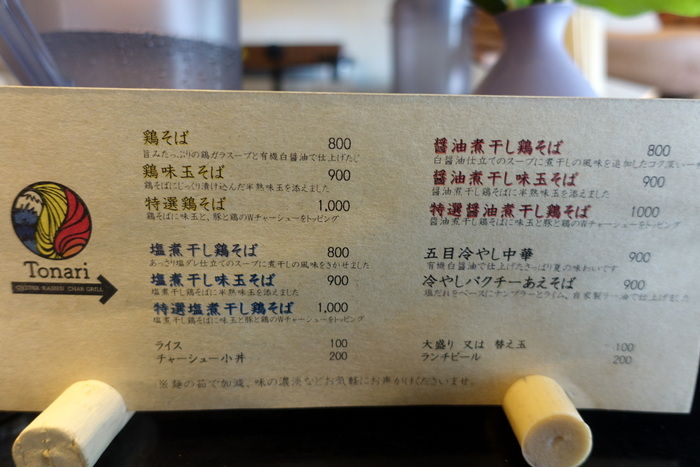 Tonari
OYSTER RAMEN CHAR GRILL
鶏そば 800
旨みたっぷりの鶏ガラスープと有機白醤油で仕上げたじ
鶏味玉そば 900
鶏そばにじっくり漬け込んだ半熟味玉を添えました
特選鶏そば 1,000
鶏そばに味玉と、豚と鶏のWチャーシューをトッピング
塩煮干し鶏そば 800
あっさり塩ダレ仕立てのスープに煮干の風味をきかせました
塩煮干し味玉そば 900
塩煮干し鶏そばに半熟味玉を添えました
特選塩煮干し鶏そば 1,000
塩煮干し鶏そばに味玉と豚と鶏のWチャーシューをトッピング
ライス 100
チャーシュー小丼 200
醤油煮干し鶏そば 800
白醤油仕立てのスープに煮干しの風味を追加したコク深い一
醤油煮干し味玉そば 900
醤油煮干し鶏そばに半熟味玉を添えました
特選醤油煮干し鶏そば 1000
醤油煮干し鶏そばに味玉と豚と鶏のWチャーシューをトッピング
五目冷やし中華 900
有機白醤油で仕上げたさっぱり夏の味わいです
冷やしパクチーあえそば 900
塩だれをベースにナンプラーとライム、自家製ラー油で仕上げました
大盛り 又は 替え玉 100
ランチビール 200
※麺の茹で加減、味の濃淡などお気軽にお声がけくださいませ。